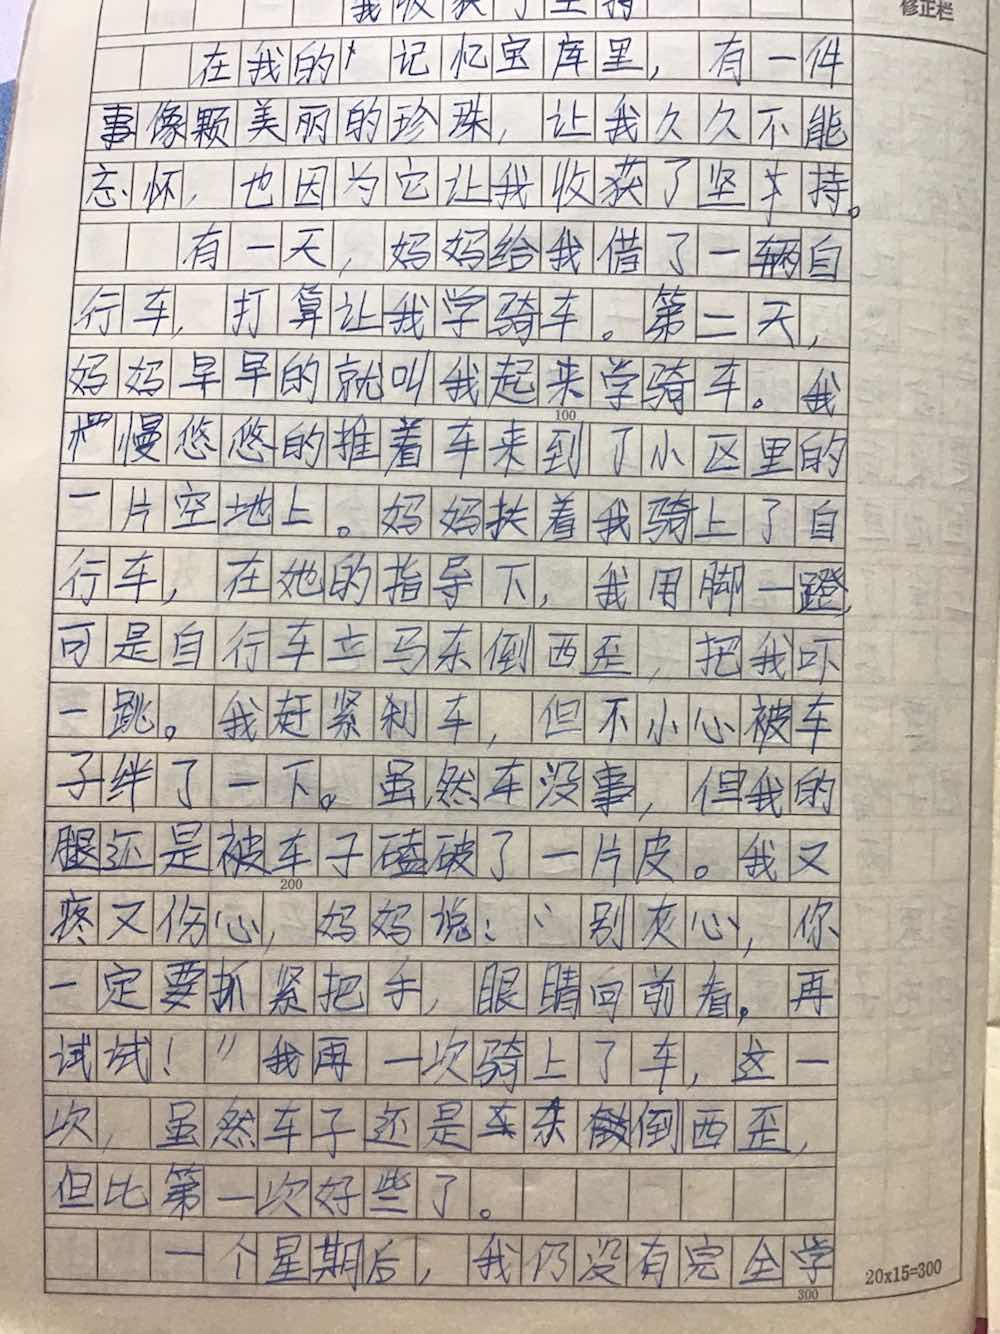 我收获了坚持
修正栏
在我的记忆宝库里，有一件
事像颗美丽的珍珠，让我久久不能
忘怀，也因为它让我收获了坚持。
有一天，妈妈给我借了一辆自
行车，打算让我学骑车。第二天，
妈妈早早的就叫我起来学骑车。我
100
慢悠悠的推着车来到了小区里的
一片空地上。妈妈扶着我骑上了自
行车，在她的指导下，我用脚一蹬，
可是自行车立马东倒西歪，把我吓
一跳。我赶紧刹车，但不小心被车
子绊了一下。虽然车没事，但我的
腿还是被车子磕破了一片皮。我又
200
疼又伤心，妈妈说：“别灰心，你
一定要抓紧把手，眼睛向前看，再
试试！”我再一次骑上了车，这一
次，虽然车子还是东倒西歪，
但比第一次好些了。
一个星期后，我仍没有完全学
20x15=300
300